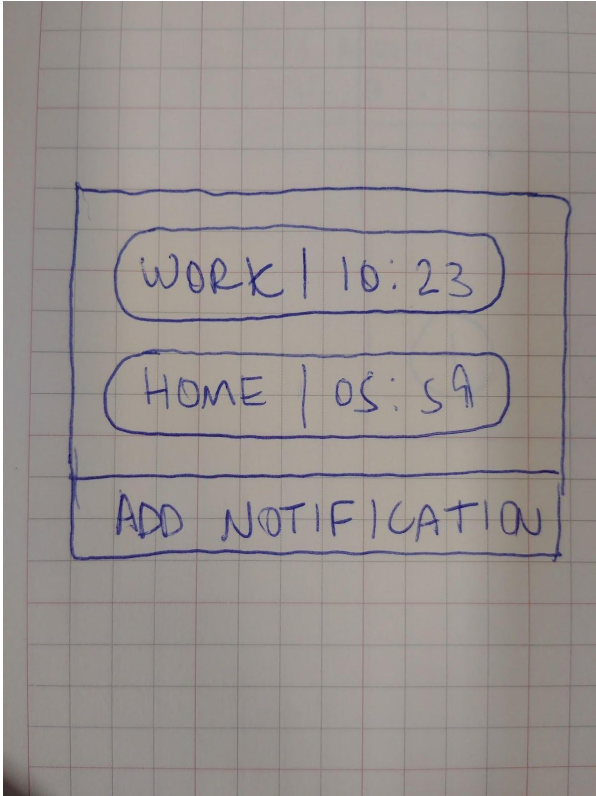 WORK | 10:23
HOME | 05:59
ADD NOTIFICATION